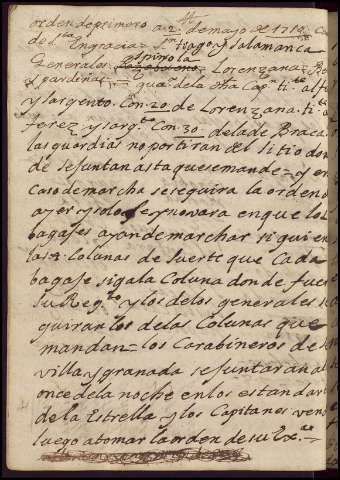 orden de primero a 2 de mayo de 1710
de sta Engracia= sn tiago y salamanca
Generales espinola Lorenzana=
y pardiñas= guar. de la otra Capn tite alfe
y sargento. Con. 20. de Lorenzana. tite
ferez. y sargto Con. 30. de la de Braca
las guardias no partiran del sitio don
de se juntan asta que se mande= y en
caso de marcha se seguira la orden de
ayer y solo se ynovara en que los
bagajes ayan de marchar siguien
las 2 Colunas de suerte que Cada
bagaje siga la Coluna donde fuer
su Regto y los de los generales si
guiran los de las Colunas que
mandan= los Carabineros de se
villa y granada se juntaran al
once de la noche en los estandar
de la Estrella y los Capitanes ven
luego a tomar la orden de su Exa